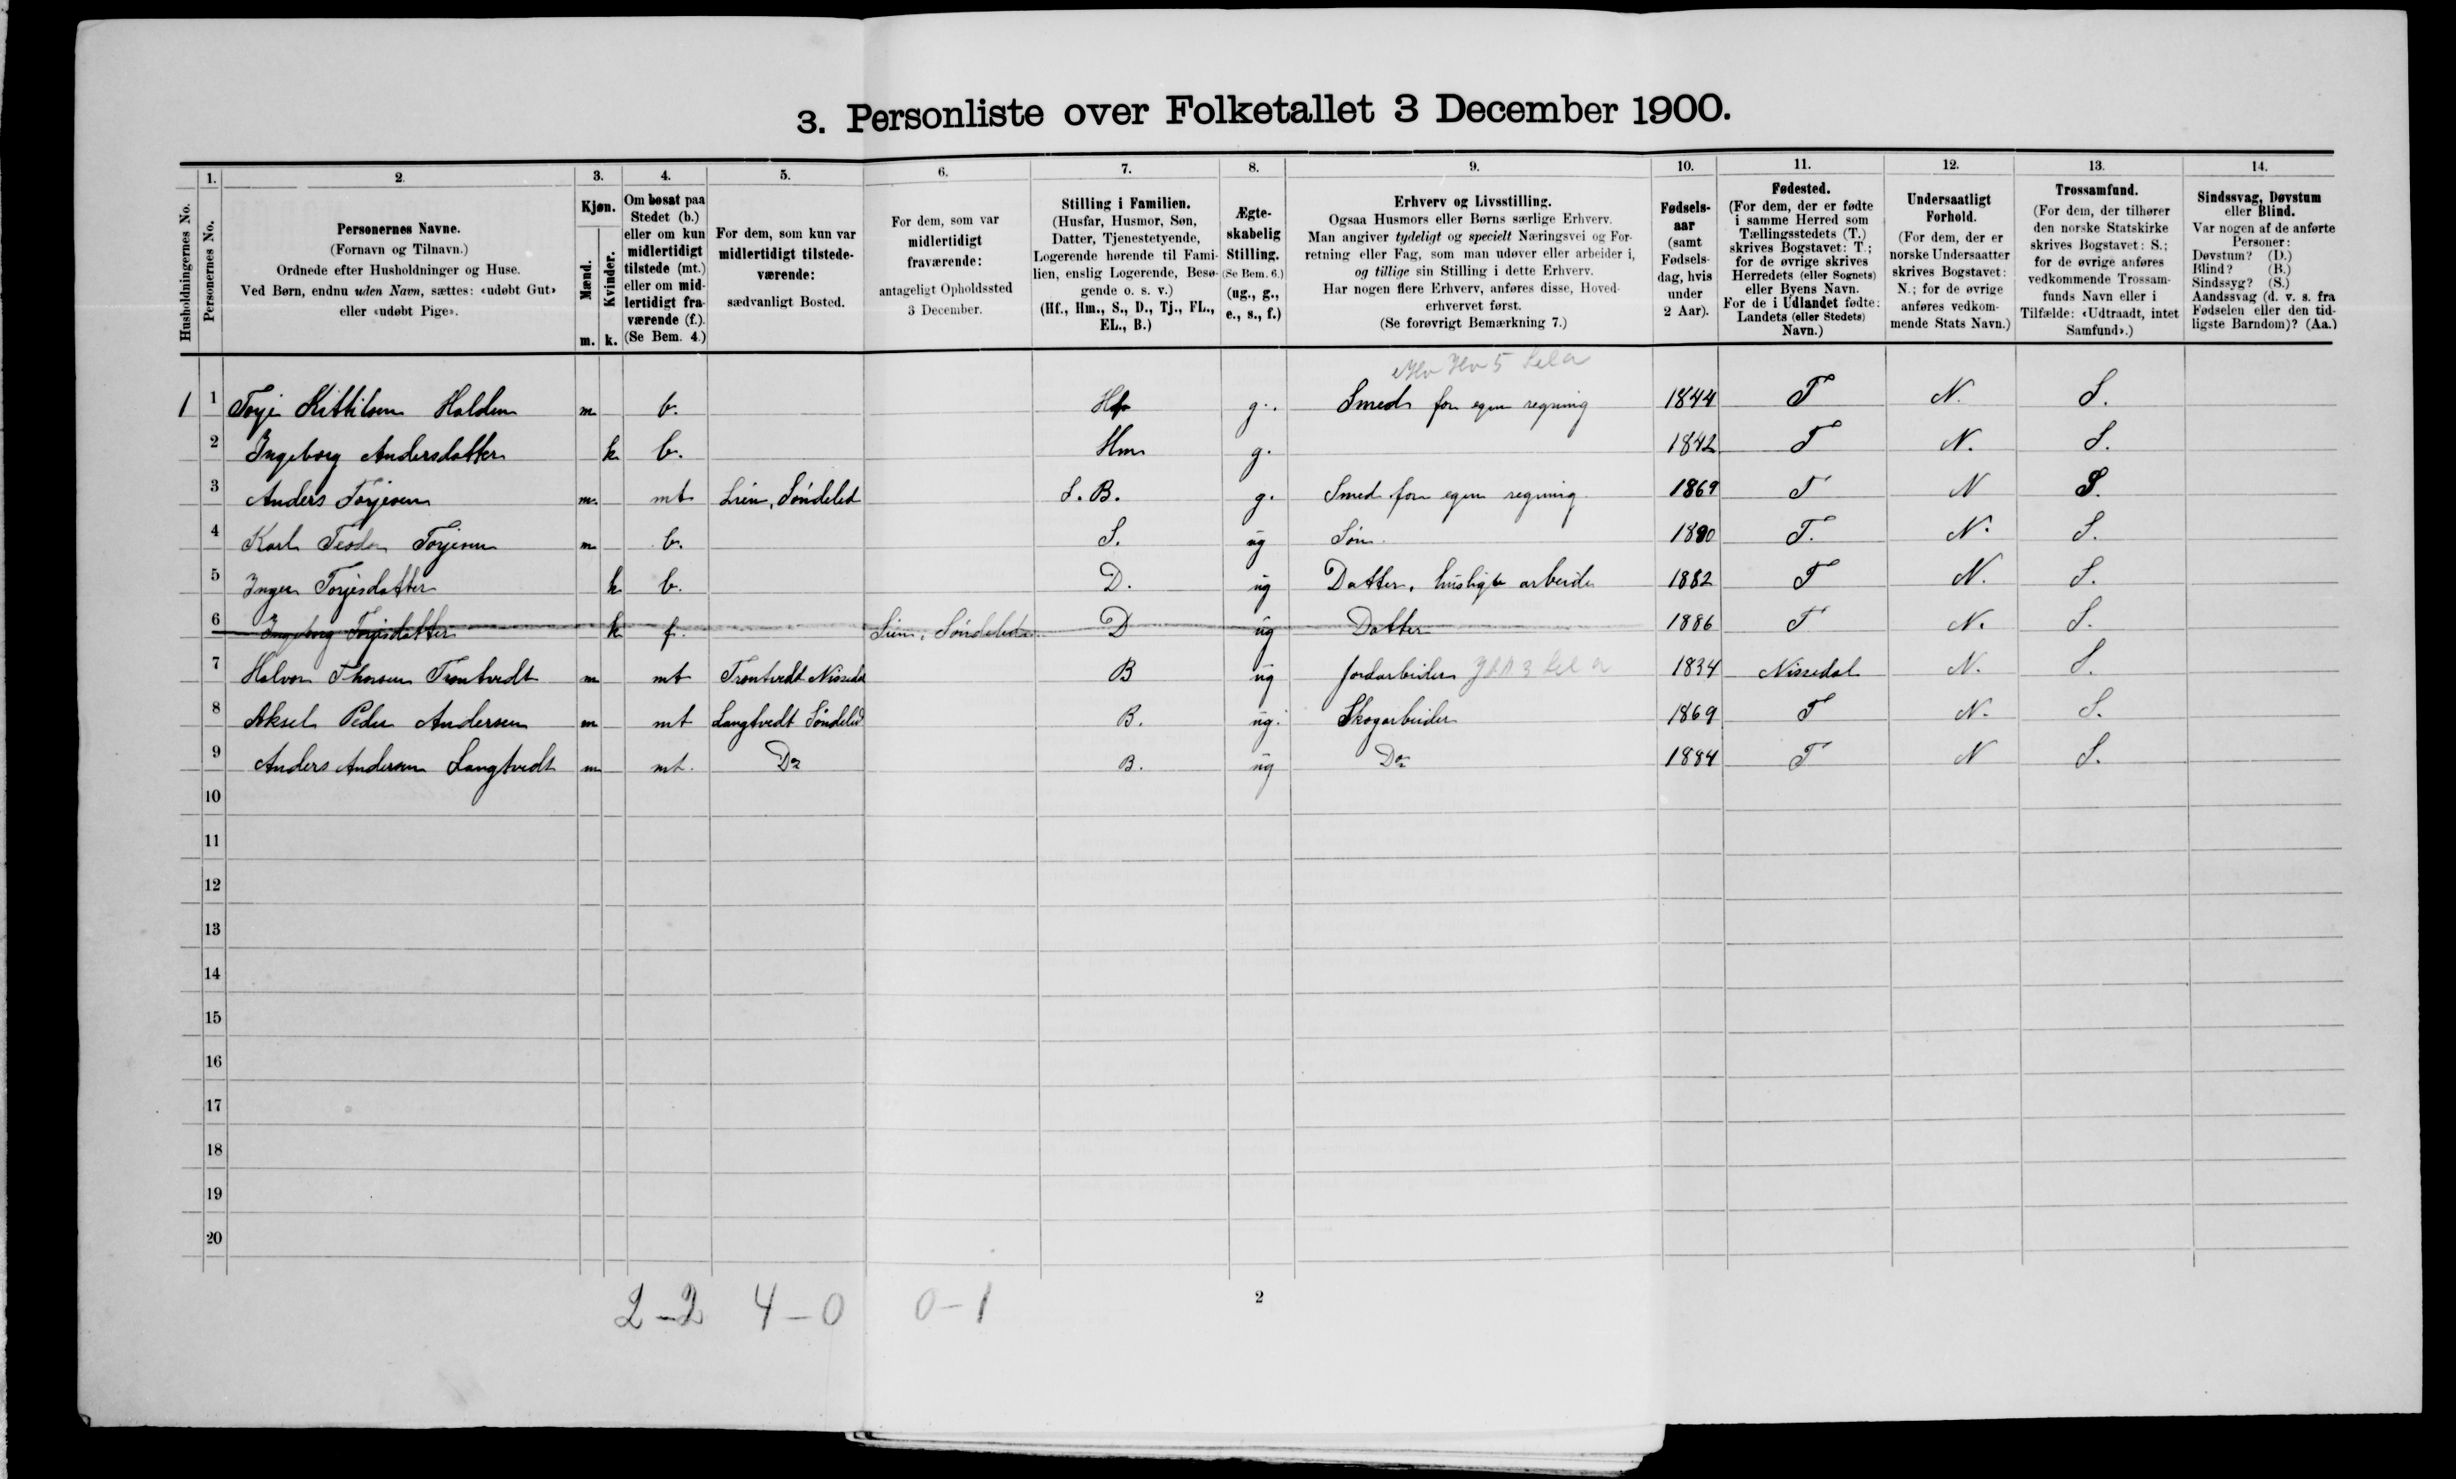 3. Personliste over Folketallet 3 December 1900.
Husholdningernes No.
1.
Personernes No.
2.
Personernes Navne.
(Fornavn og Tilnavn.)
Ordnede efter Husholdninger og Huse.
Ved Børn, endnu uden Navn, sættes: «udøbt Gut»
eller «udøbt Pige».
3.
Kjøn.
Mænd.
Kvinder.
m. k.
4.
Om bosat paa
Stedet (b.)
eller om kun
midlertidigt
tilstede (mt.)
eller om mid-
lertidigt fra-
værende (f.).
(Se Bem. 4.)
5.
For dem, som kun var
midlertidigt tilstede-
værende:
sædvanligt Bosted.
6.
For dem, som var
midlertidigt
fraværende:
antageligt Opholdssted
3 December.
7.
Stilling i Familien.
(Husfar, Husmor, Søn,
Datter, Tjenestetyende,
Logerende hørende til Fami-
lien, enslig Logerende, Besø-
gende o. s. v.)
(Hf., Hm., S., D., Tj., FL.,
EL., B.)
8.
Ægte-
skabelig
Stilling.
(Se Bem. 6.)
(ug., g.,
e., s., f.)
9.
Erhverv og Livsstilling.
Ogsaa Husmors eller Børns særlige Erhverv.
Man angiver tydeligt og specielt Næringsvei og For-
retning eller Fag, som man udøver eller arbeider i,
og tillige sin Stilling i dette Erhverv.
Har nogen flere Erhverv, anføres disse, Hoved-
erhvervet først.
(Se forøvrigt Bemærkning 7.)
10.
Fødsels-
aar
(samt
Fødsels-
dag, hvis
under
2 Aar).
11.
Fødested.
(For dem, der er fødte
i samme Herred som
Tællingsstedets (T.)
skrives Bogstavet: T.;
for de øvrige skrives
Herredets (eller Sognets)
eller Byens Navn.
For de i Udlandet fødte:
Landets (eller Stedets)
Navn.)
12.
Undersaatligt
Forhold.
(For dem, der er
norske Undersaatter
skrives Bogstavet:
N.; for de øvrige
anføres vedkom-
mende Stats Navn.)
13.
Trossamfund.
(For dem, der tilhører
den norske Statskirke
skrives Bogstavet: S.;
for de øvrige anføres
vedkommende Trossam-
funds Navn eller i
Tilfælde: «Udtraadt, intet
Samfund».)
14.
Sindssvag, Døvstum
eller Blind.
Var nogen af de anførte
Personer:
Døvstum? (D.)
Blind? (B.)
Sindssyg? (S.)
Aandssvag (d. v. s. fra
Fødselen eller den tid-
ligste Barndom)? (Aa.)
1 1 Torje Kittilsen Holden m b. Hf g. Smed for egen regning 1844 T N. S.
2 Ingeborg Andersdatter k b. Hm g. 1842 T N. S.
3 Anders Torjesen m. mt Lien, Söndeled S. B. g. Smed for egen regning 1869 T N S.
4 Karl Teodor Torjesen m b. S. ug Søn T. N. S.
5 Inger Torjesdatter k b. D. ug Datter, huslige arbeide 1882 T N. S.
6 Ingeborg Torjesdatter k f. Lien, Söndeled D ug Datter 1886 T N. S.
7 Halvor Thorsen Trontvedt m mt Trontvedt Nissedal B ug Jordarbeider 1834 Nissedal N. S.
8 Aksel Peder Andersen m mt Langtvedt Söndeled B. ug. Skogarbeider 1869 T N. S.
9 Anders Andersen Langtvedt m mt. Do B. ug Do 1884 T N S.
10
11
12
13
14
15
16
17
18
19
20
2-2 4-0 0-1
2